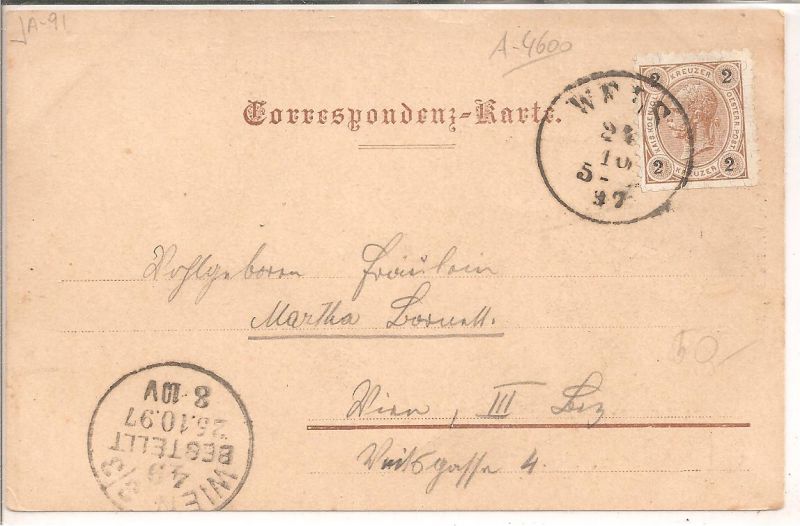 JA-91
A-4600
Correspondenz-Karte.
WELS
24
10
5-
97
2 KREUZER 2
KAIS. KOENIGL. OESTERR. POST.
2 KREUZER 2
Wohlgeboren Fräulein
Martha Bornett.
50-
Wien, III Bez
Veitsgasse 4.
WIEN 3/3
49
BESTELLT
25.10.97
8·10V